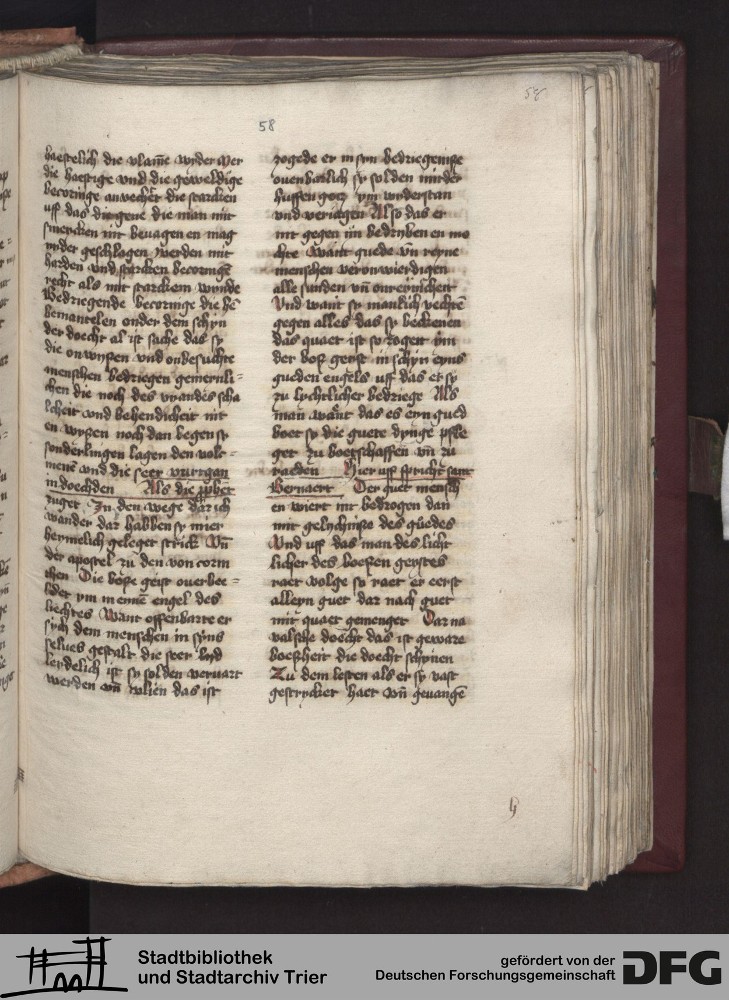 58
58
haestelich die vlam̄e wyder wer
die haestige vnd die geweldige
becoringe anvechtet die starcken
uff das diegene die man mit
smeycken nit bewagen en mag
nyder geschlagen werden mit
harden vnd starcken becoringē
recht als mit starckem wynde
Bedriegende becoringe die hē
bemantelen onder dem schyn
der doecht al ist sache das sy
die onwysen vnd onbesuchte
menschen bedriegen gemernli-
chen die noch des vyandes scha
lcheit vnd behendicheit nit
en wyßen noch dan legen sy
sonderlingen lagen den volc-
menē vnd die seer vurtgan
in doechden Als die pphet
zuget Jn den wege dar ich
wander dar habben sy mier
heymelich geleget strick Vn̄
der apostel zu den von corin
then Die böße geist overbee-
ldet ym in eynē engel des
liechtes Want offenbarte er
sich dem menschen in syns
selues gestalt die seer leyd
leydelich ist sy solden vervart
werden vn̄ vlien das ist
zogede er in syn bedriegeniße
ouenbarlich sy solden mit der
hulffen gotz ym wyderstan
vnd veriagen Also das er
nit gegen im bedryben en mo
chte Want guede vn̄ reyne
menschen veronwierdigen
alle sunden vn̄ onreynicheit
Vnd want sy manlich vechtē
gegen alles das sy beckenen
das quaet ist so togett ym
der boß geist in schyn eyns
gueden engels uff das er sy
zu lychtlicher bedriege Als
man want das es eyn gued
boet sy die guete dynge pfle
get zu boetschaffen vn̄ zu
raeden Hier uff spricht sant
Bernaert Der guet mensch
en wiert nit bedrogen dan
mit gelychniße des guedes
Vnd uff das man des licht
licher des boeßen geystes
raet volge so raet er eerst
alleyn guet dar nach guet
mit quaet gemenget Dar na
valsche doecht das ist geware
boeßheit die doecht schynen
Zu dem lesten als er sy vast
gestricket haet vn̄ gevangē
Stadtbibliothek
und Stadtarchiv Trier
gefördert von der
Deutschen Forschungsgemeinschaft
DFG